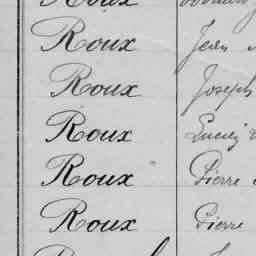 Roux
Roux Jean
Roux Joseph
Roux Lucien
Roux Pierre
Roux Pierre